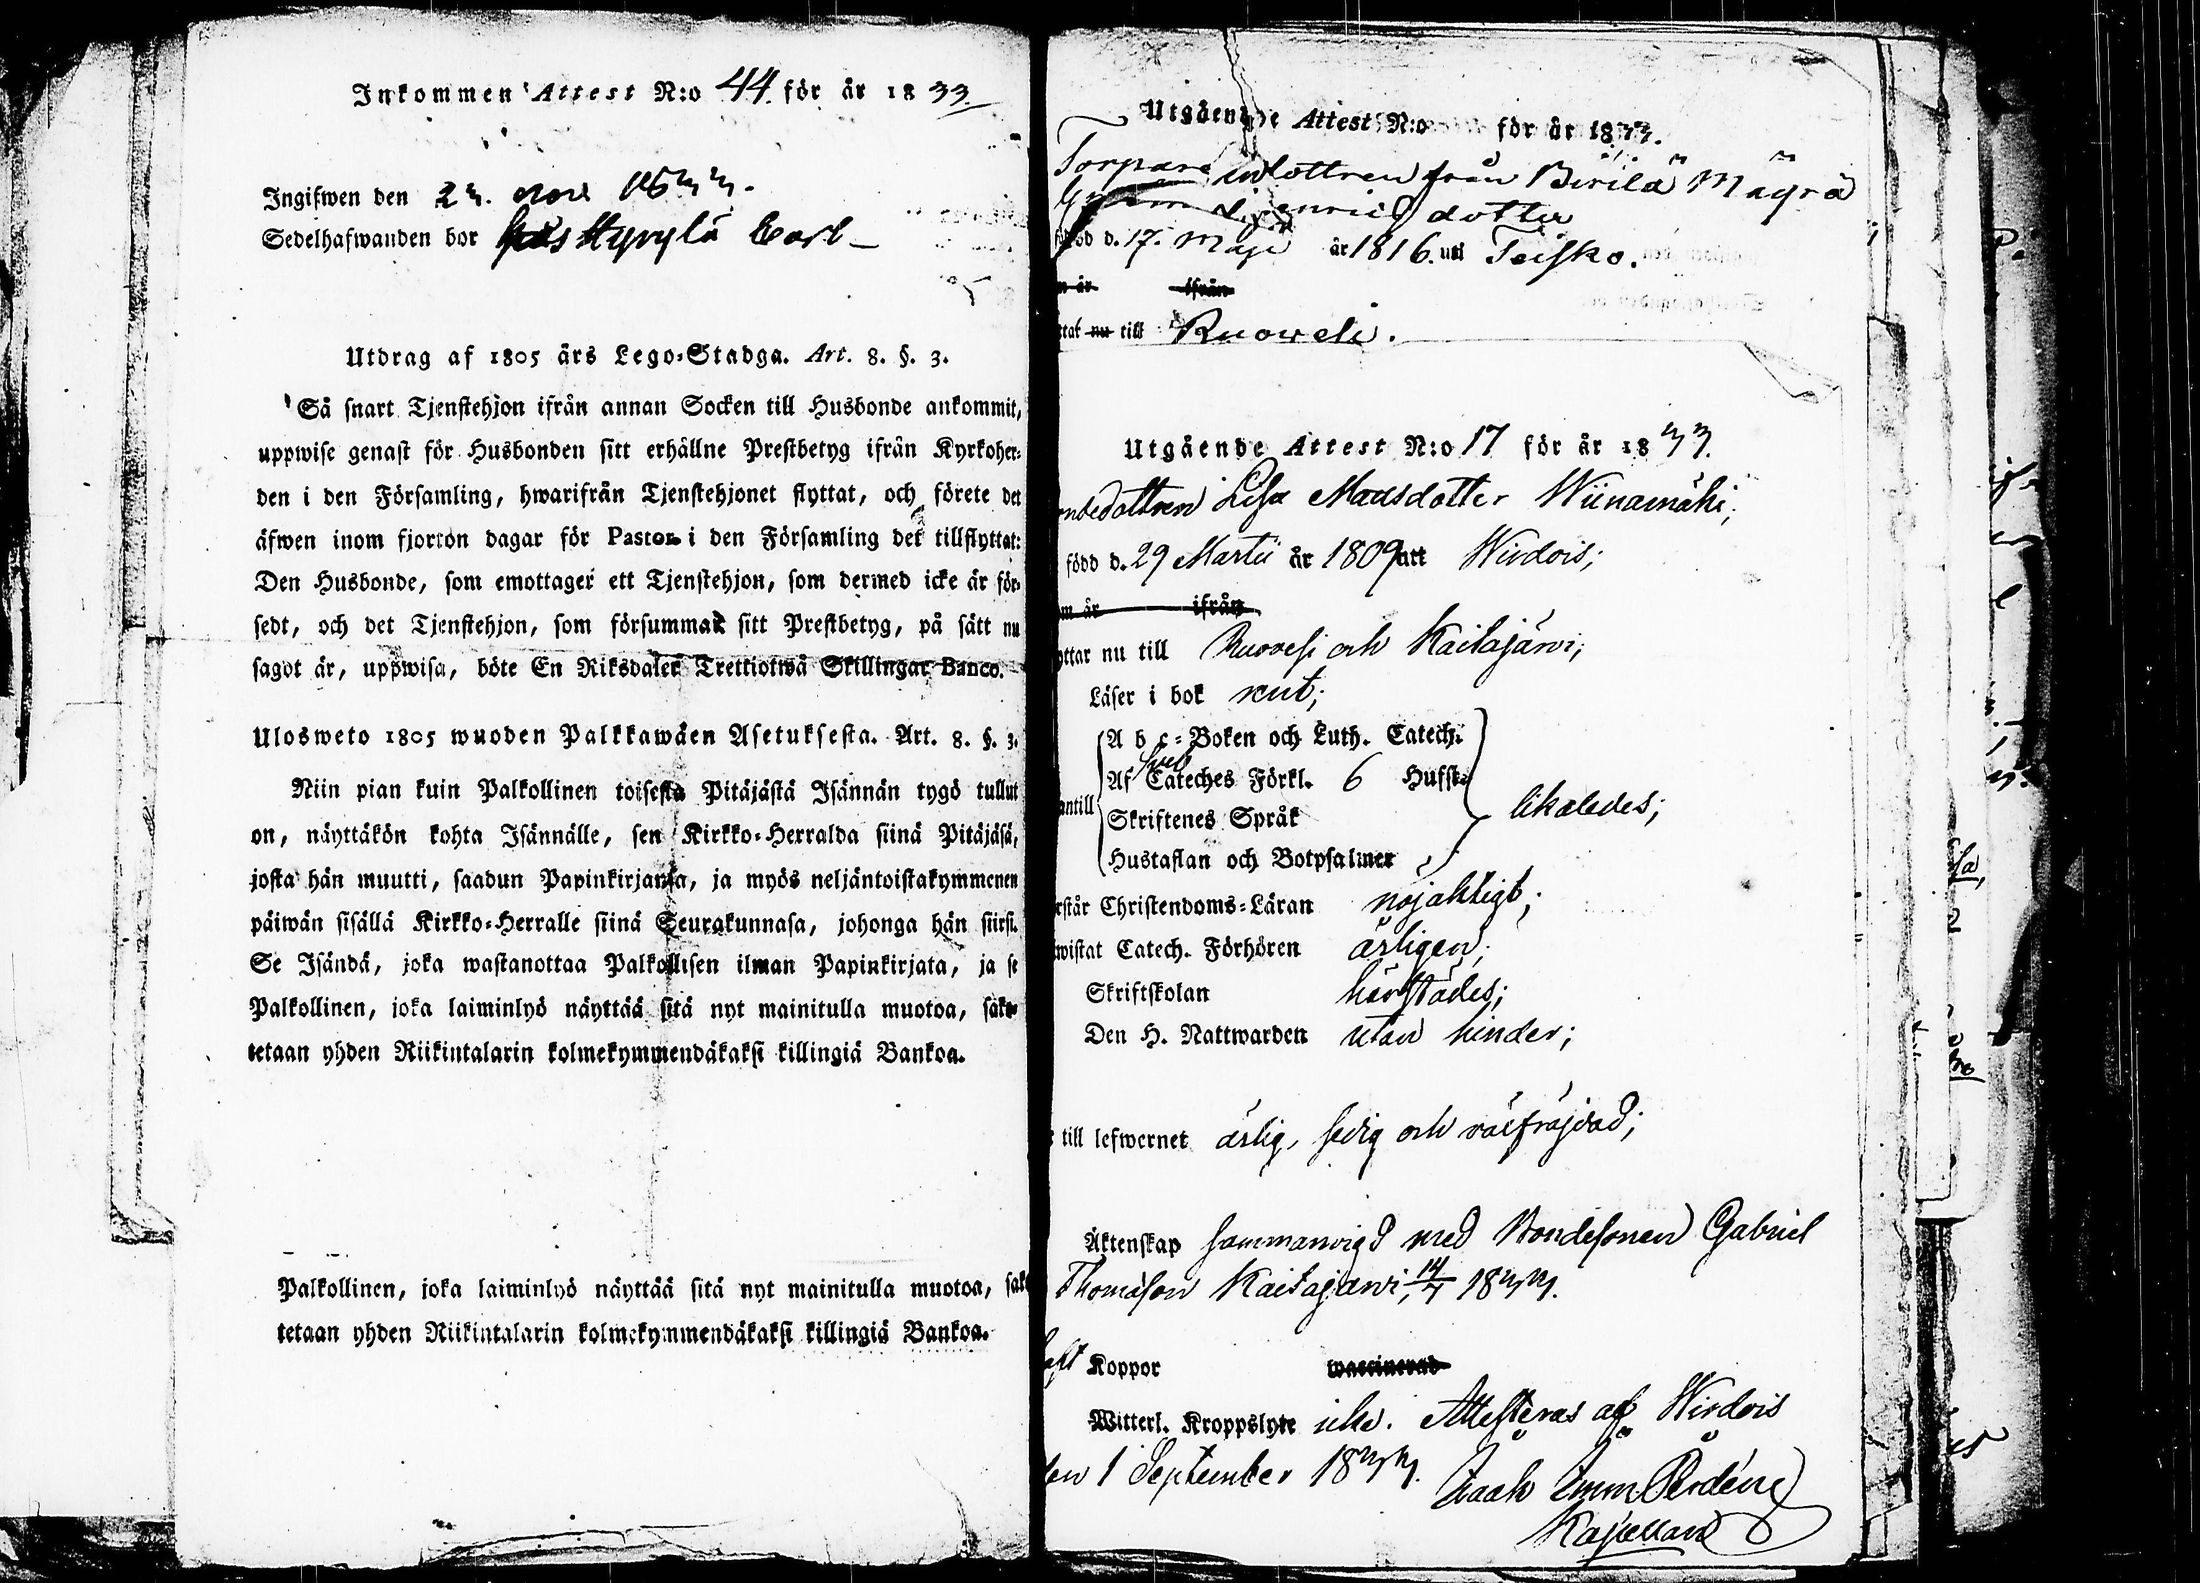 Inkommen Attest N:o 44. för år 1833.
Ingifwen den 23. Nov 1833.
Sedelhafwanden bor hos Hyrylä Carl
Utdrag af 1805 års Lego-Stadga. Art. 8. §. 3.
Så snart Tjenstehjon ifrån annan Socken till Husbonde ankommit,
uppwise genast för Husbonden sitt erhållne Prestbetyg ifrån Kyrkoher-
den i den Församling, hwarifrån Tjenstehjonet flyttat, och förete det
äfwen inom fjorton dagar för Pastor i den Församling det tillflyttat:
Den Husbonde, som emottager ett Tjenstehjon, som dermed icke är för-
sedt, och det Tjenstehjon, som försummar sitt Prestbetyg, på sätt nu
sagot är, uppwisa, böte En Riksdaler Trettiotwå Skillingar Banco.
Ulosweto 1805 wuoden Palkkawäen Asetuksesta. Art. 8. §. 3.
Niin pian kuin Palkollinen toisesta Pitäjästä Isännän tygö tullut
on, näyttäkön kohta Isännälle, sen Kirkko-Herralda siinä Pitäjäsä,
josta hän muutti, saadun Papinkirjansa, ja myös neljäntoistakymmenen
päiwän sisällä Kirkko-Herralle siinä Seurakunnasa, johonga hän siirsi.
Se Isändä, joka wastanottaa Palkollisen ilman Papinkirjata, ja se
Palkollinen, joka laiminlyö näyttää sitä nyt mainitulla muotoa, sako-
tetaan yhden Riikintalarin kolmekymmendäkaksi killingiä Bankoa.
Palkollinen, joka laiminlyö näyttää sitä nyt mainitulla muotoa, sak
tetaan yhden Riikintalarin kolmekymmendäkaksi killingiä Bankoa.
Utgående Attest N:o för år 1833.
Torpare dottren från Birilä Mäyrä
Henrics dotter
född d. 17. Maji år 1816. uti Teisko.
m år ifrån
ttat nu till Ruowesi.
Utgående Attest N:o 17 för år 1833.
ondedottren Lisa Madsdotter Wiinamäki;
född d. 29 Martii år 1809 uti Wirdois;
m år ifrån
yttar nu till Ruovesi och Kaitajärvi;
Läser i bok rent;
A b c-Boken och Luth. Catech.
Af Sveb. Cateches Förkl. 6 Hufst.
antill Skriftenes Språk likaledes;
Hustaflan och Botpsalmer
rstår Christendoms-Läran nöjaktigt;
wistat Catech. Förhören årligen;
Skriftskolan härstädes;
Den H. Nattwarden utan hinder;
till lefwernet ärlig, sedig och välfräjdad;
Äktenskap sammanvigd med Bondesonen Gabriel
Thomasson Kaitajärvi, 14/7 1833.
aft Koppor waccinerad
Witterl. Kroppslyte icke. Attesteras af Wirdois
den 1 September 1833.
Isaak Imm
Kapellan